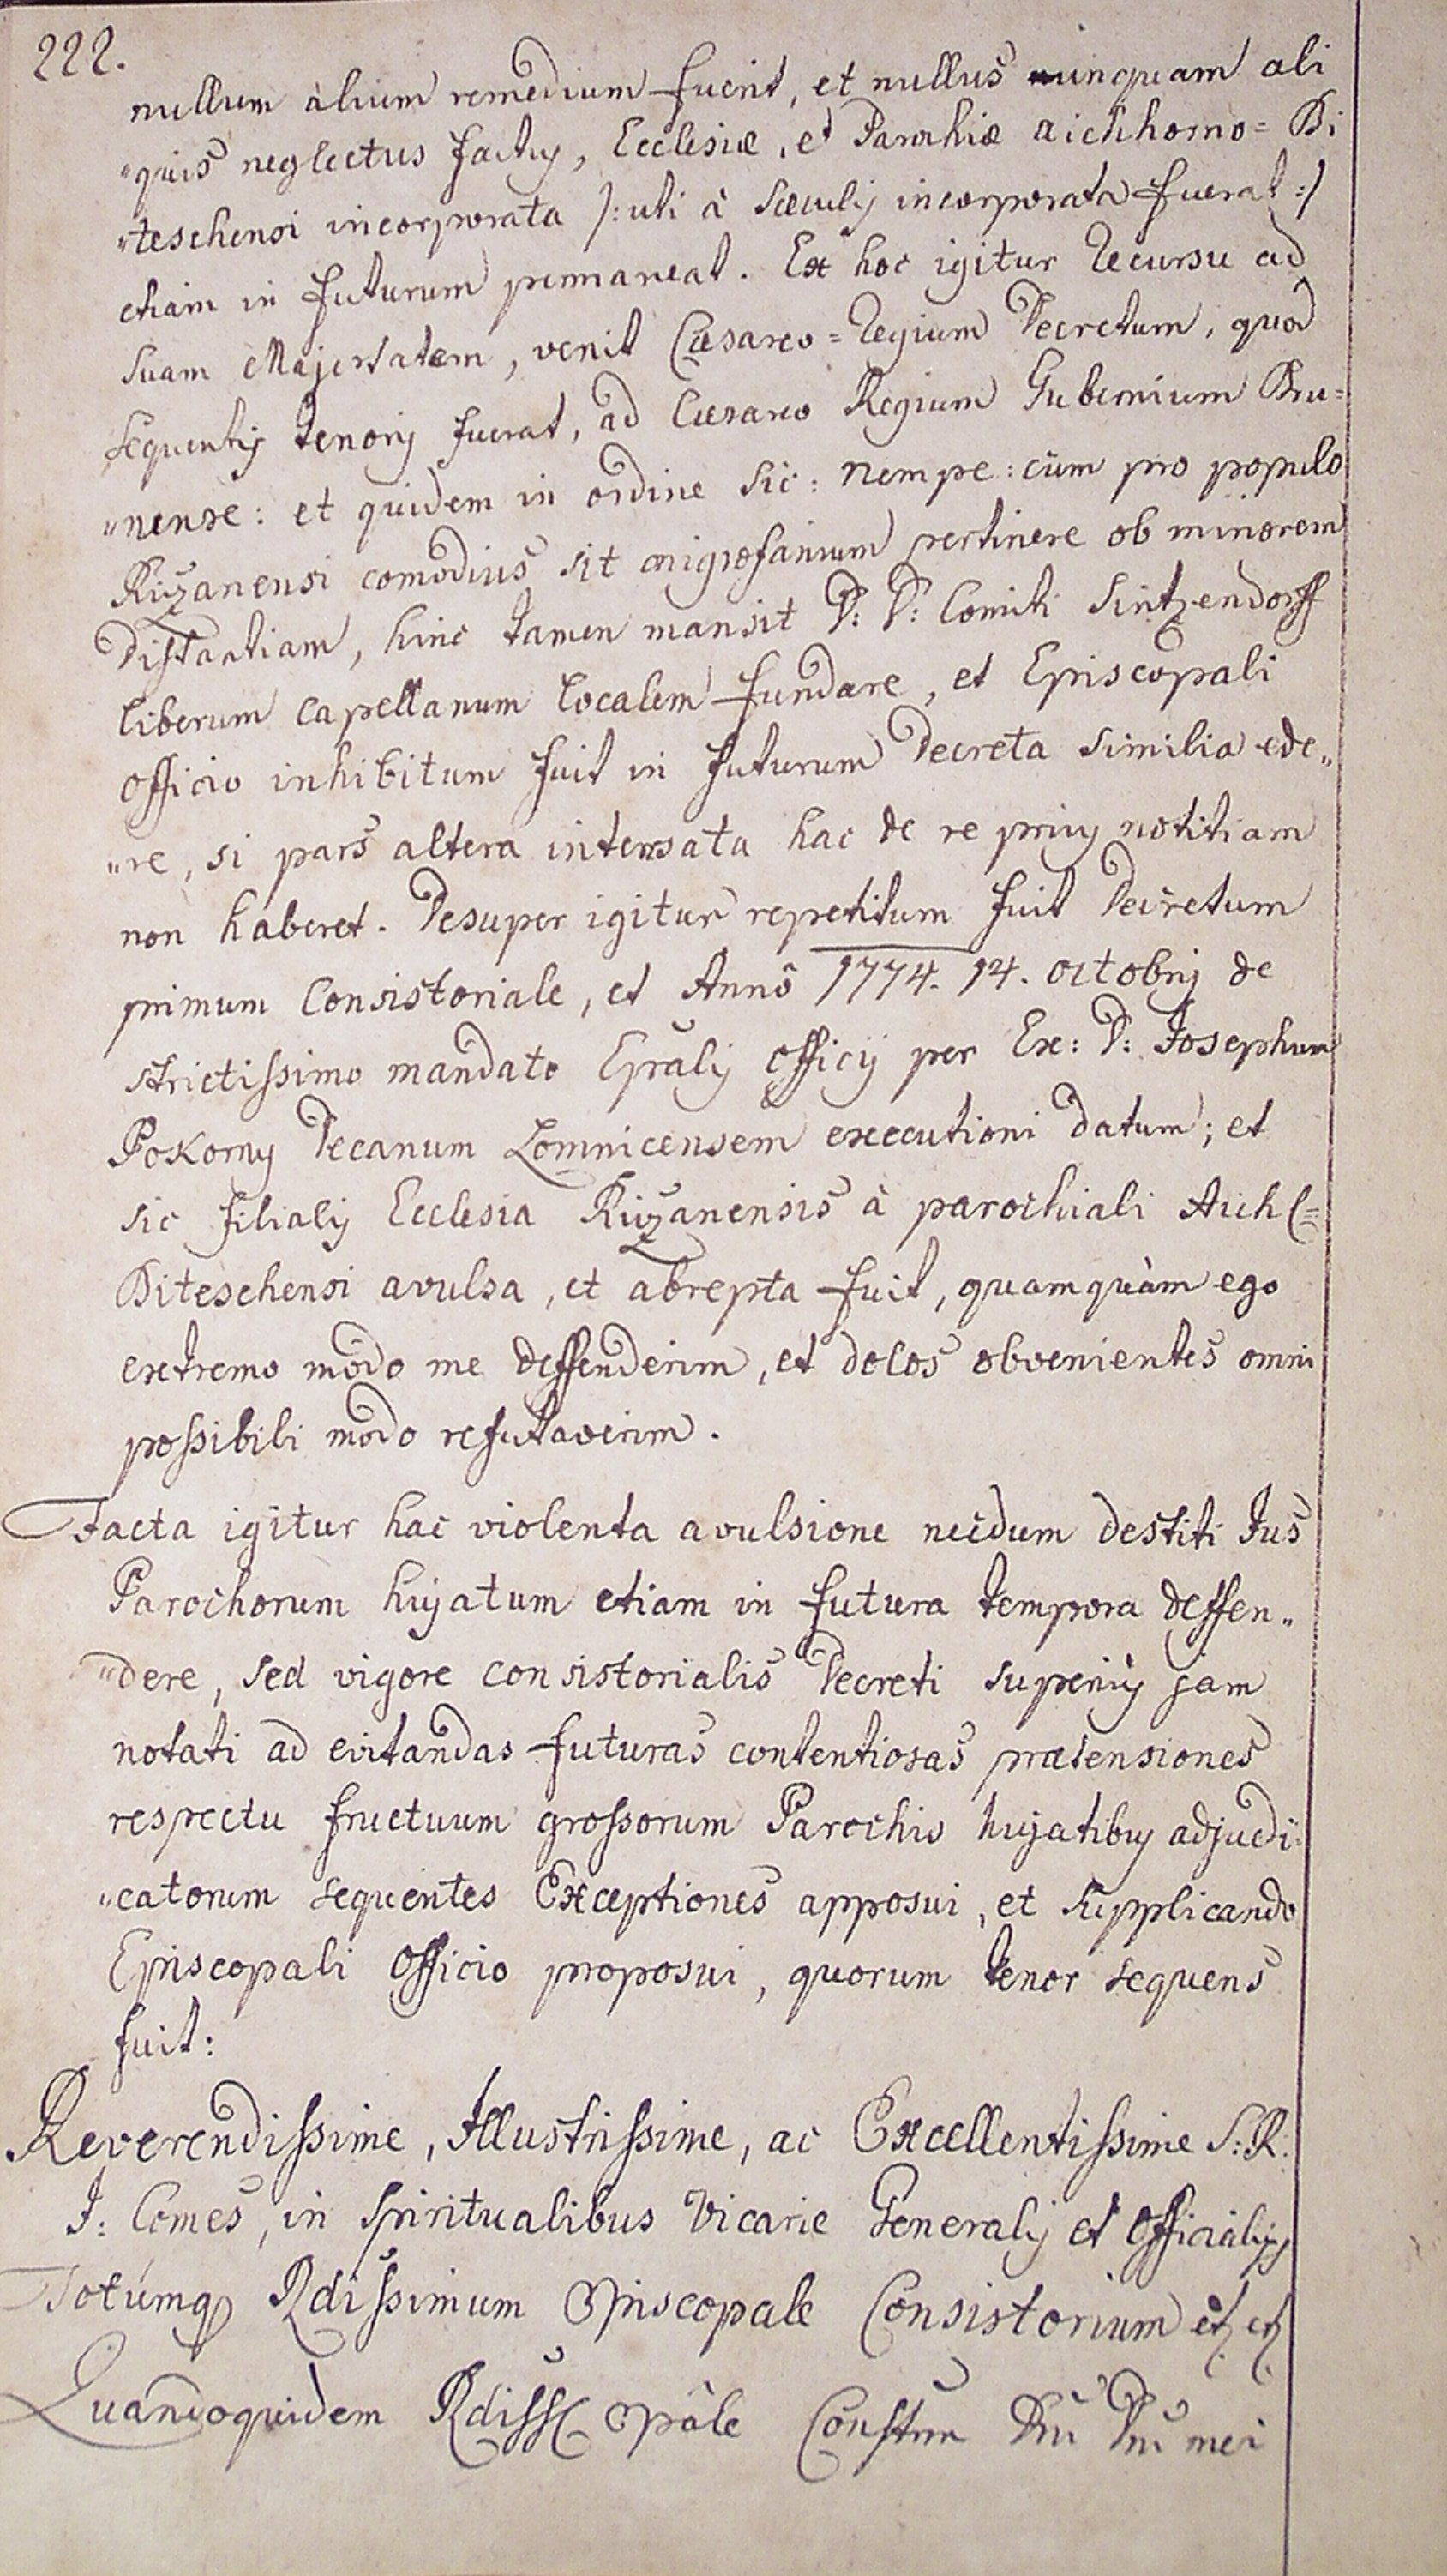 222.
nullum alium remedium fuerit, et nullus unquam ali
"quis neglectus factus, Ecclesiæ, et Parochiæ aichhorno = Bi
"teschensi incorporata /: uti à sæculis incorporata fuerat :/
etiam in futurum permaneat. Ex hoc igitur recursu ad
suam Majestatem, venit Cæsareo = Regium Decretum, quod
sequentis tenoris fuerat, ad Cæsareo Regium Gubernium Bru=
"nense: et quidem in ordine sic: nempe: cùm pro populo
Ružanensi comodius sit ad pertinere ob minorem
distantiam, hinc tamen mansit D: D: Comiti Sintzendorff
liberum capellanum localem fundare, et Episcopali
officio inhibitum fuit in futurum Decreta similia ede„
"re, si pars altera interssata hac de re prius notitiam
non haberet. Desuper igitur repetitum fuit Decretum
primum Consistoriale, et Annô 1774. 14. octobris de
strictissimo mandato Epralis officij per Ex: D: Josephum
Pokorny Decanum Lomnicensem executioni datum; et
sic filialis Ecclesia Ružanensis à parochiali Aich=
Biteschensi avulsa, et abrepta fuit, quamquàm ego
extremo modo me deffenderim, et dolos obvenientes omni
possibili modo refutaverim.
Facta igitur hac violenta avulsione necdum destiti Jus
Parochorum hujatum etiam in futura tempora deffen„
"dere, sed vigore consistorialis Decreti superius jam
notati ad evitandas futuras contentiosas prætensiones
respectu fructuum grossorum Parochis hujatibus adjudi
"catorum sequentes Exceptiones apposui, et supplicando
Episcopali officio proposui, quorum tenor sequens
fuit:
Reverendissime, Illustrissime, ac Excellentissime S: R:
I: Comes, in Spiritualibus Vicarie Generalis et officialis
Totúmq Rdissimum Episcopale Consistorium et et
Quandoquidem Rdiss Epâle Constrm Dni Dni mei